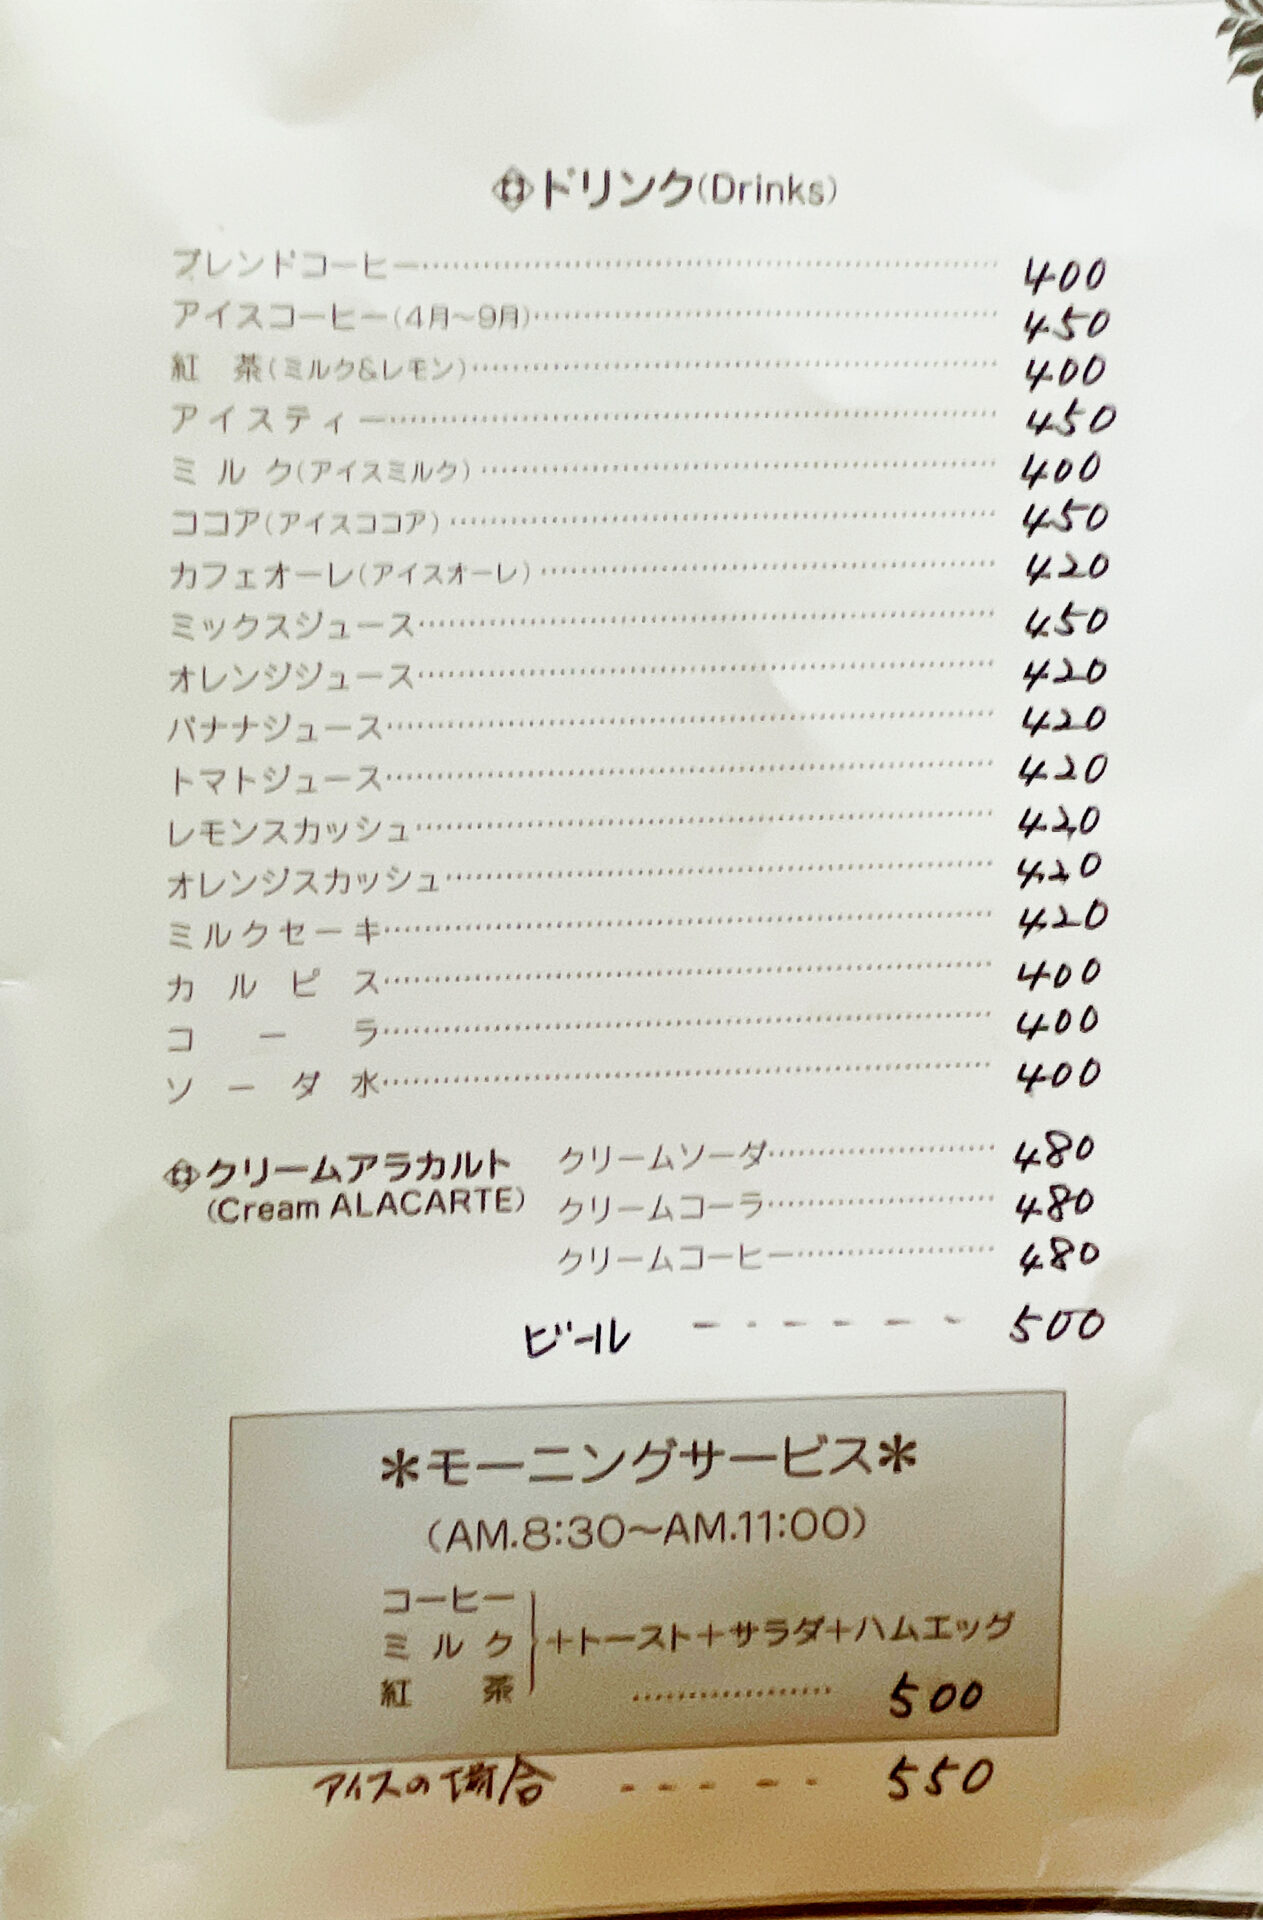 ドリンク(Drinks)
ブレンドコーヒー 400
アイスコーヒー(4月〜9月) 450
紅茶(ミルク&レモン) 400
アイスティー 450
ミルク(アイスミルク) 400
ココア(アイスココア) 450
カフェオーレ(アイスオーレ) 420
ミックスジュース 450
オレンジジュース 420
バナナジュース 420
トマトジュース 420
レモンスカッシュ 420
オレンジスカッシュ 420
ミルクセーキ 420
カルピス 400
コーラ 400
ソーダ水 400
クリームアラカルト
(Cream ALACARTE)
クリームソーダ 480
クリームコーラ 480
クリームコーヒー 480
ビール 500
*モーニングサービス*
(AM.8:30〜AM.11:00)
コーヒー
ミルク
紅茶
+トースト+サラダ+ハムエッグ
500
アイスの場合 550